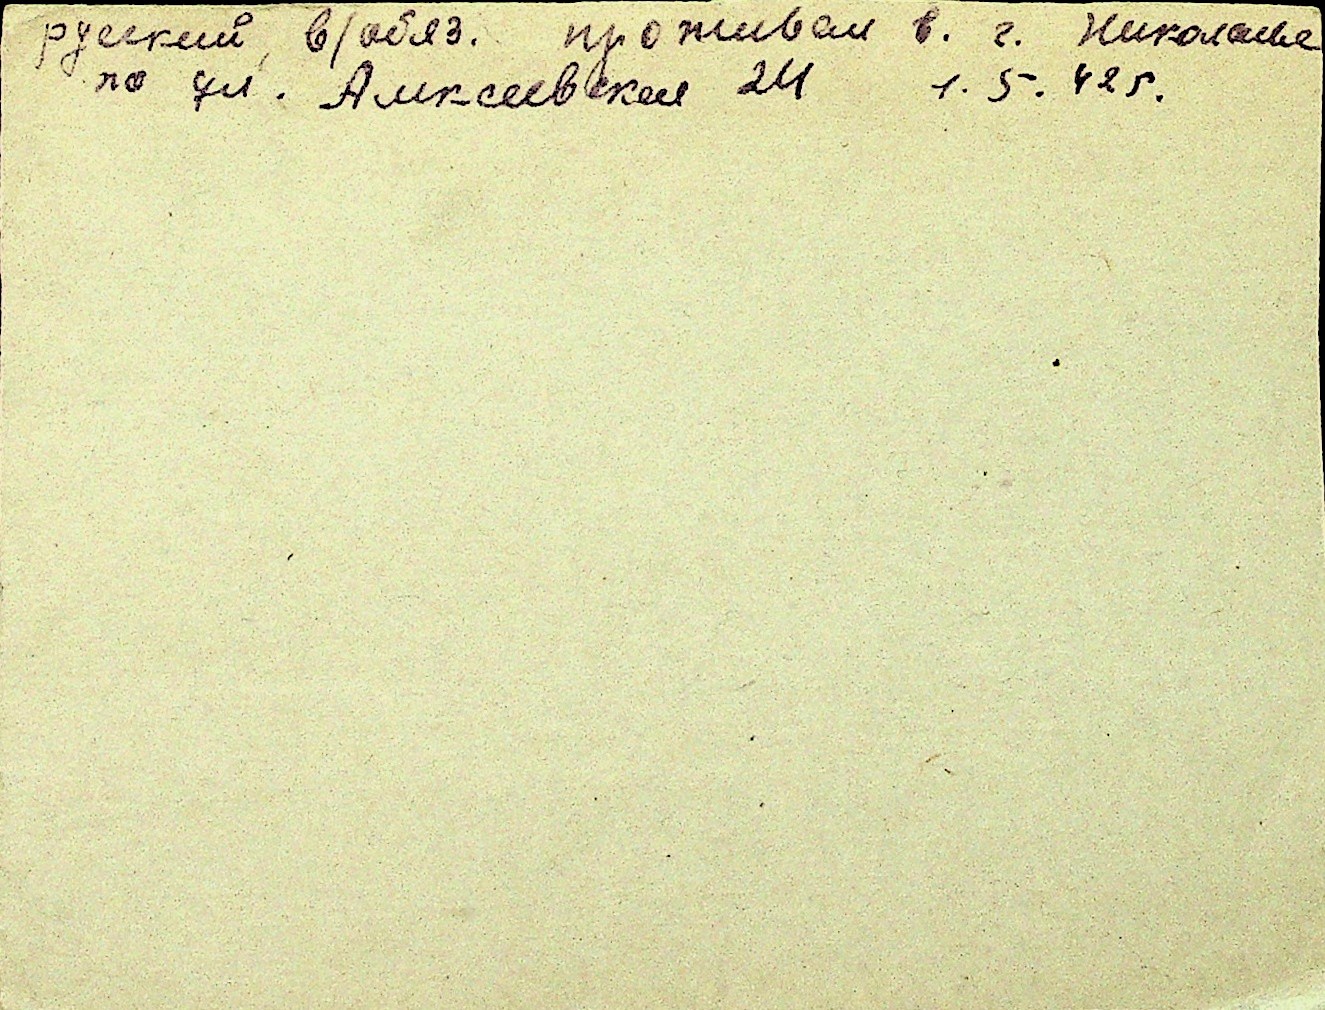 русский, в/обяз. проживал в. г. Николаеве
по ул. Алексеевская 24 1. 5. 42 г.